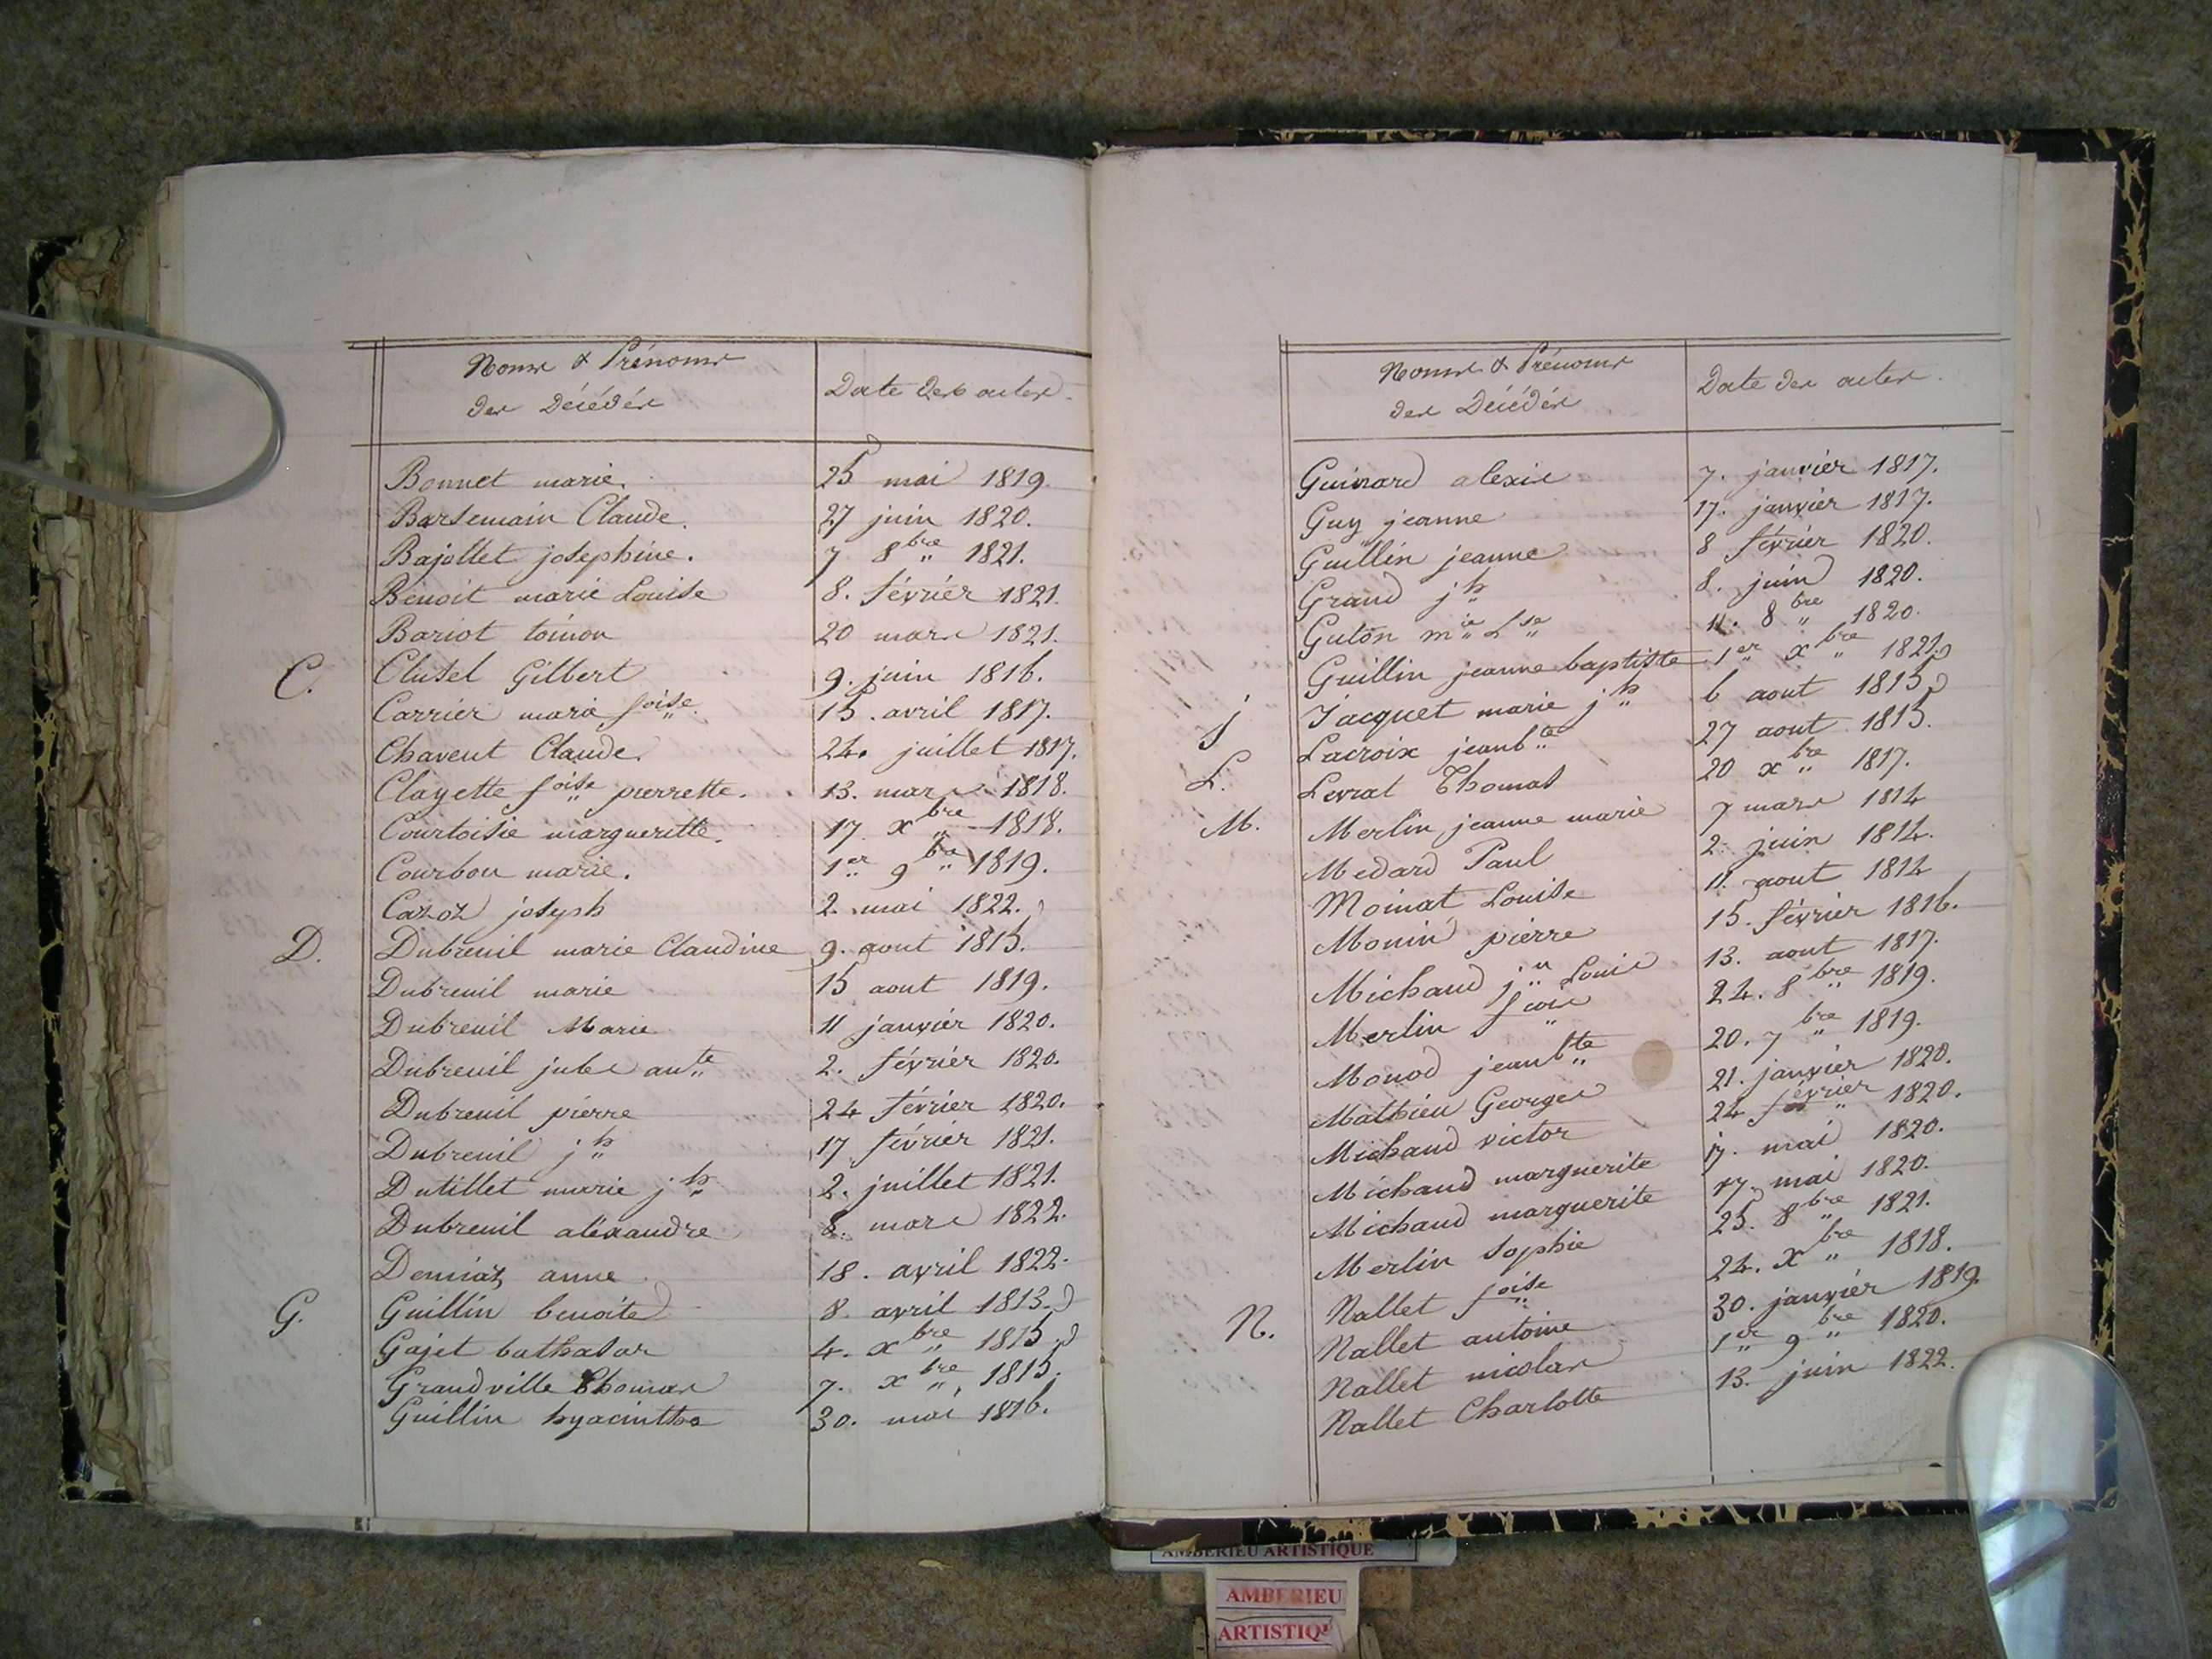 Noms & Prénoms
des Décédés
Date des actes.
Bonnet marie. 25 mai 1819.
Barsemain Claude. 27 juin 1820.
Bajollet josephine. 7 8bre 1821.
Benoit marie Louise 8. février 1821.
Bariot toinon 20 mars 1821.
C. Clusel Gilbert 9. juin 1816.
Carrier marie foise. 15. avril 1817.
Chavent Claude. 24. juillet 1817.
Clayette foise pierrette. 13. mars 1818.
Courtoisie margueritte. 17 xbre 1818.
Courbon marie. 1er 9bre 1819.
Cazoz joseph 2. mai 1822.
D. Dubreuil marie Claudine 9. aout 1815.
Dubreuil marie 15 aout 1819.
Dubreuil Marie 11 janvier 1820.
Dubreuil jules ante 2. février 1820.
Dubreuil pierre 24 février 1820.
Dubreuil jh 17 février 1821.
Dutillet marie jh 2. juillet 1821.
Dubreuil aléxandre 8. mars 1822.
Demiaz anne 18. avril 1822.
G. Guillin benoite 8. avril 1813.
Gajet bathasar 4. xbre 1815
Grandville Thomas 7. xbre 1815.
Guillin hyacinthe 30. mai 1816.
Noms & Prénoms
des Décédés
Date des actes.
Guinard alexis 7. janvier 1817.
Guy jeanne 17. janvier 1817.
Guillin jeanne 8 février 1820.
Grand jh 8. juin 1820.
Guton mie Lse 11. 8bre 1820.
Guillin jeanne baptiste 1er xbre 1821.
j Jacquet marie jh 6 aout 1815
L. Lacroix jeanbte 27 aout 1815.
Levrat Thomas 20 xbre 1817.
M. Merlin jeanne marie 7 mars 1814
Medard Paul 2. juin 1814.
Moinat Louise 11. aout 1814
Monin pierre 15. février 1816.
Michaud jn Louis 13. aout 1817.
Merlin fcois 24. 8bre 1819.
Monod jeanbte 20. 7bre 1819.
Mathieu Georges 21. janvier 1820.
Michaud victor 24 février 1820.
Michaud marguerite 17. mai 1820.
Michaud marguerite 17. mai 1820.
Merlin Sophie 25. 8bre 1821.
N. Nallet foise 24. xbre 1818.
Nallet antoine 30. janvier 1819.
Nallet nicolas 1er 9bre 1820.
Nallet Charlotte 13. juin 1822.
AMBERIEU ARTISTIQUE
AMBERIEU
ARTISTIQU